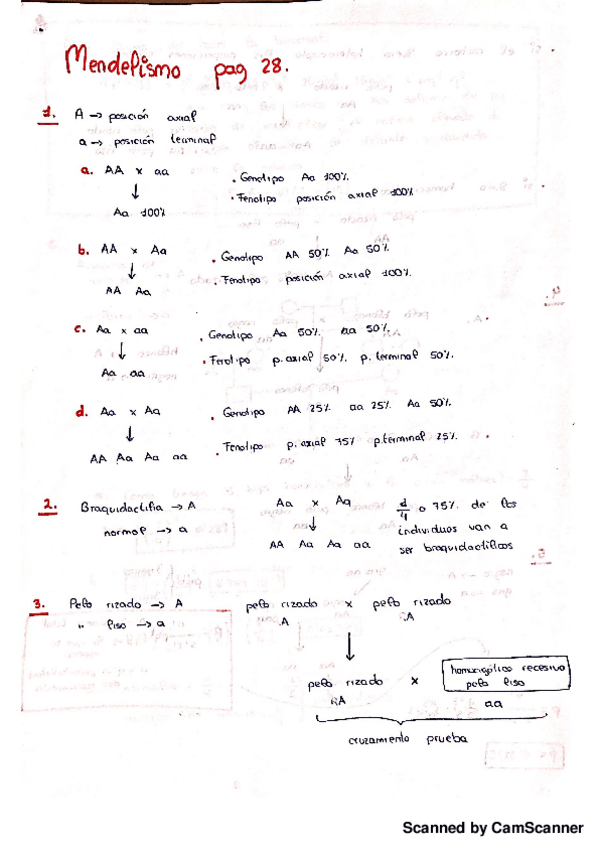 Mendelismo pag 28.
1. A → posición axial
a → posición terminal
a. AA x aa
· Genotipo Aa 100%
↓
· Fenotipo posición axial 100%
Aa 100%
b. AA x Aa
· Genotipo AA 50% Aa 50%.
↓
· Fenotipo posición axial 100%.
AA Aa
c. Aa x aa
· Genotipo Aa 50% aa 50%.
↓
· Fenotipo p. axial 50% p. terminal 50%.
Aa aa
d. Aa x Aa
· Genotipo AA 25% aa 25% Aa 50%.
↓
· Fenotipo p. axial 75% p.terminal 25%.
AA Aa Aa aa
2. Braquidactilia → A
normal → a
Aa x Aa
↓
AA Aa Aa aa
o 75% de los
individuos van a
ser braquidactilicos
3. Pelo rizado → A
" liso → a
pelo rizado x pelo rizado
↓
pelo rizado x
homocigótico recesivo
pelo liso
aa
cruzamiento prueba
Scanned by CamScanner